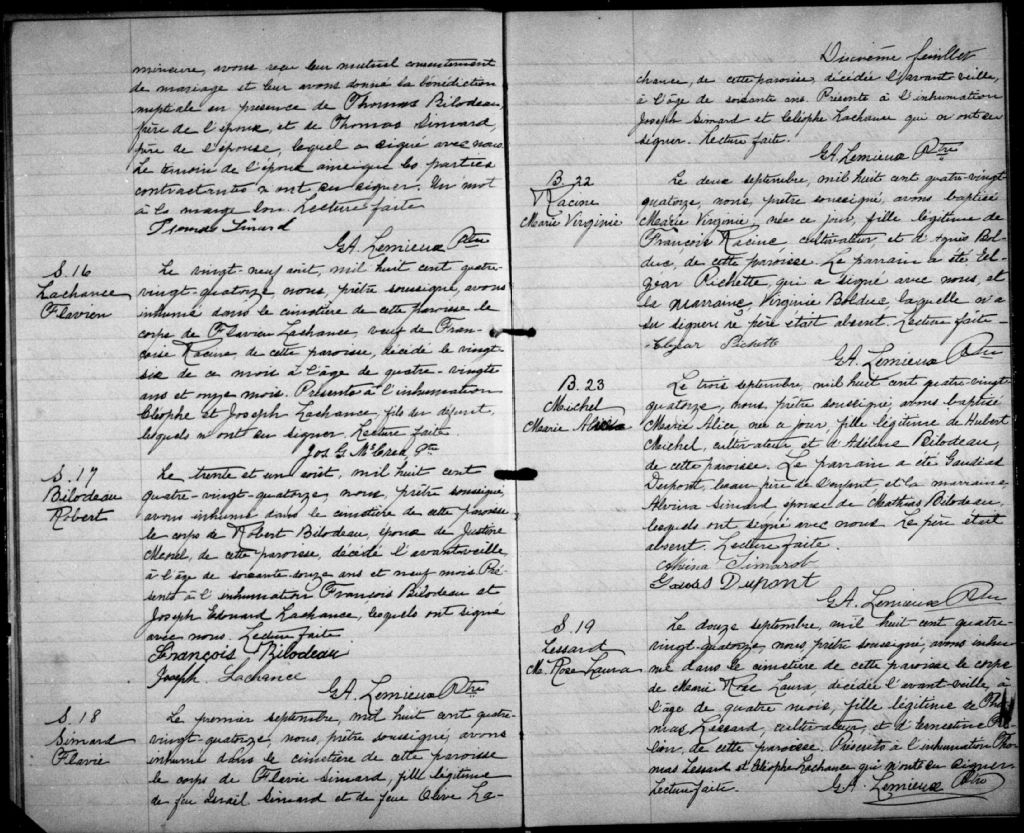 mineure, avons reçu leur mutuel consentement
de mariage et leur avons donné la bénédiction
nuptiale en présence de Thomas Bilodeau,
père de l'époux, et de Thomas Simard,
père de l'épouse, lequel a signé avec nous.
Le témoin de l'époux ainsi que les parties
contractantes n'ont su signer. Un mot
à la marge bon. Lecture faite
Thomas Simard
G.A. Lemieux Ptre
S. 16
Lachance
Flavien
Le vingt-neuf août, mil huit cent quatre-
vingt-quatorze, nous, prêtre soussigné, avons
inhumé dans le cimetière de cette paroisse le
corps de Flavien Lachance, veuf de Fran-
çoise Racine, de cette paroisse, décédé le vingt-
six de ce mois à l'âge de quatre-vingts
ans et onze mois. Présents à l'inhumation
Cléophe et Joseph Lachance, fils du défunt,
lesquels n'ont su signer. Lecture faite.
Jos G. McCrea Ptre
S. 17
Bilodeau
Robert
Le trente et un août, mil huit cent
quatre-vingt-quatorze, nous, prêtre soussigné,
avons inhumé dans le cimetière de cette paroisse
le corps de Robert Bilodeau, époux de Justine
de cette paroisse, décédé l'avant-veille,
à l'âge de soixante-douze ans et neuf mois. Pré-
sents à l'inhumation François Bilodeau et
Joseph Edouard Lachance, lesquels ont signé
avec nous. Lecture faite
François Bilodeau
Joseph Lachance
G.A. Lemieux Ptre
S. 18
Simard
Flavie
Le premier septembre, mil huit cent quatre-
vingt-quatorze, nous, prêtre soussigné, avons
inhumé dans le cimetière de cette paroisse
le corps de Flavie Simard, fille légitime
de feu Israïl Simard et de feue Olive La-
feuillet
chance, de cette paroisse, décédée l'avant-veille,
à l'âge de soixante ans. Présents à l'inhumation
Joseph Simard et Cléophe Lachance qui n'ont su
signer. Lecture faite.
G.A. Lemieux Ptre
B. 22
Racine
Marie Virginie
Le deux septembre, mil huit cent quatre-vingt-
quatorze, nous, prêtre soussigné, avons baptisé
Marie Virginie, née ce jour, fille légitime de
François Racine, cultivateur, et d'Agnès Bol-
duc, de cette paroisse. Le parrain a été El-
zéar Pichette, qui a signé avec nous, et
la marraine, Virginie Bolduc, laquelle n'a
su signer; le père était absent. Lecture faite-
Elzéar Pichette
G.A. Lemieux Ptre
B. 23
Michel
Marie
Le trois septembre, mil huit cent quatre-vingt-
quatorze, nous, prêtre soussigné, avons baptisé
Marie Alice née ce jour, fille légitime de Hubert
Michel, cultivateur et d'Adéline Bilodeau,
de cette paroisse. Le parrain a été Gaudias
Dupont, beau père de l'enfant, et la marraine,
Alvina Simard épouse de Mathias Bilodeau,
lesquels ont signé avec nous. Le père était
absent. Lecture faite.
Alvina Simard
Dupont
G.A. Lemieux Ptre
S. 19
Lessard
M. Rose Laura
Le douze septembre, mil huit cent quatre-
vingt-quatorze, nous, prêtre soussigné, avons inhu-
mé dans le cimetière de cette paroisse le corps
de Marie Rose Laura, décédée l'avant-veille, à
l'âge de quatre mois, fille légitime de Tho-
mas Lessard, cultivateur, et d'Ernestine
de cette paroisse. Présents à l'inhumation Tho-
mas Lessard et Cléophe Lachance qui n'ont su signer.
Lecture faite.
G.A. Lemieux Ptre